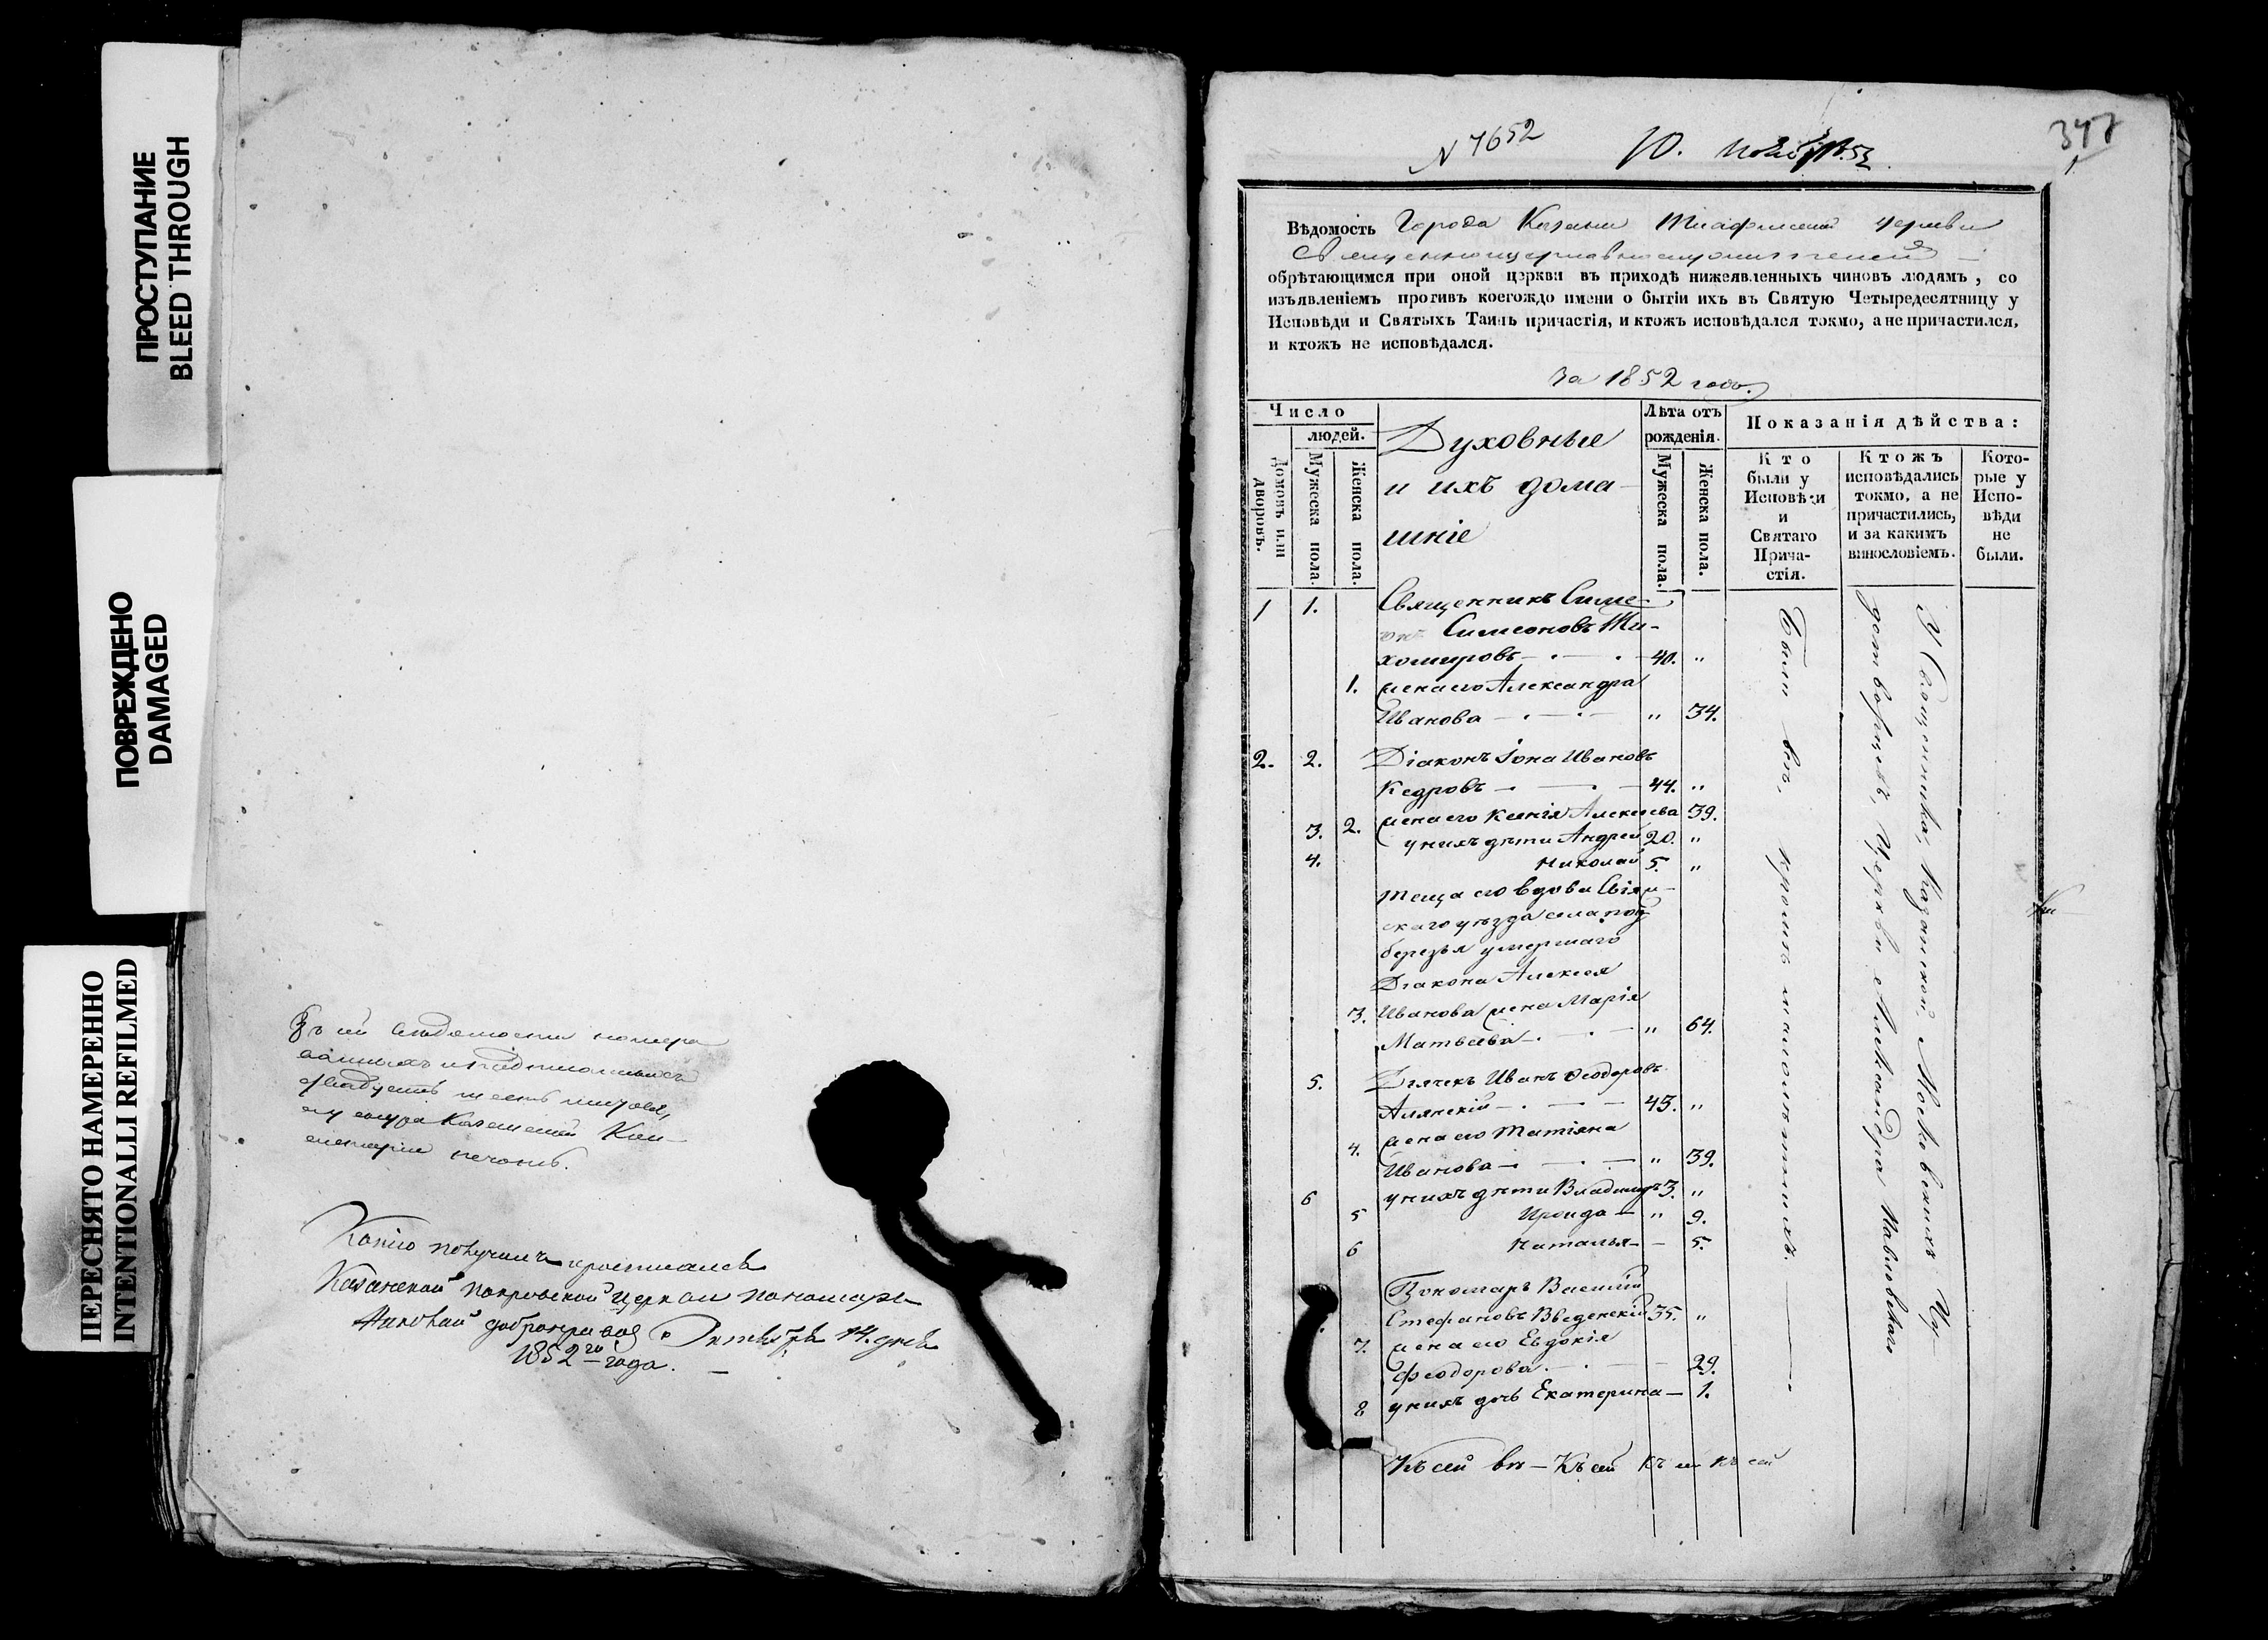 ПРОСТУПАНИЕ
BLEED THROUGH
ПОВРЕЖДЕНО
DAMAGED
ПЕРЕСНЯТО НАМЕРЕННО
INTENTIONALLI REFILMED
номера
Казанской
печать.
Копію получилъ
Казанской Покровской Церкви пономарь
Октября 14. дня
1852го года.
N 7652
10.
347
Вѣдомость Города Казани церкви
обрѣтающимся при оной церкви въ приходѣ нижеявленныхъ чиновъ людямъ, со
изъявленіемъ противъ коегождо имени о бытіи ихъ въ Святую Четыредесятницу у
Исповѣди и Святыхъ Таинъ причастія, и ктожъ исповѣдался токмо, а не причастился,
и ктожъ не исповѣдался.
За 1852 годъ.
Число
людей.
Домовъ или дворовъ.
Мужеска пола.
Женска пола.
Духовные
и ихъ дома-
шніе
Лѣта отъ
рожденія.
Мужеска пола.
Женска пола.
Показанія дѣйства:
Кто
были у
Исповѣди
и
Святаго
Прича-
стія.
Ктожъ
исповѣдались
токмо, а не
причастились,
и за какимъ
винословіемъ.
Кото-
рые у
Испо-
вѣди
не
были.
1 1. Священникъ Симе-
онъ Симеоновъ Ти-
хомировъ 40. "
1. жена его Александра
Иванова " 34.
2. 2. Діаконъ Іона Ивановъ
Кедровъ 44. "
2. жена его Ксенія Алексеева 39.
3. у нихъ дѣти Андрей 20. "
4. Николай 5. "
Теща его вдова Свіяж-
скаго уѣзда села Под
березья умершаго
Діакона Алексея
3. Иванова жена Марія
Матвеева " 64.
5. Дьячекъ Иванъ Ѳеодоровъ
45. "
4. жена его Татіяна
Иванова " 39.
6 у нихъ дѣти Владиміръ 3. "
5 Ироида " 9.
6 Наталья 5.
Пономарь Василій
Стефановъ Введенскій 35. "
7. жена его Евдокія
Феодорова 29.
8 у нихъ дочь Екатерина 1.
Къ сей вѣ - Къ сей къ сей къ сей
Были всѣ, кромѣ малолѣтнихъ.
У Священника, Казанской, Московскихъ Чу-
дотворцевъ, Церкви Александра Павловскаго